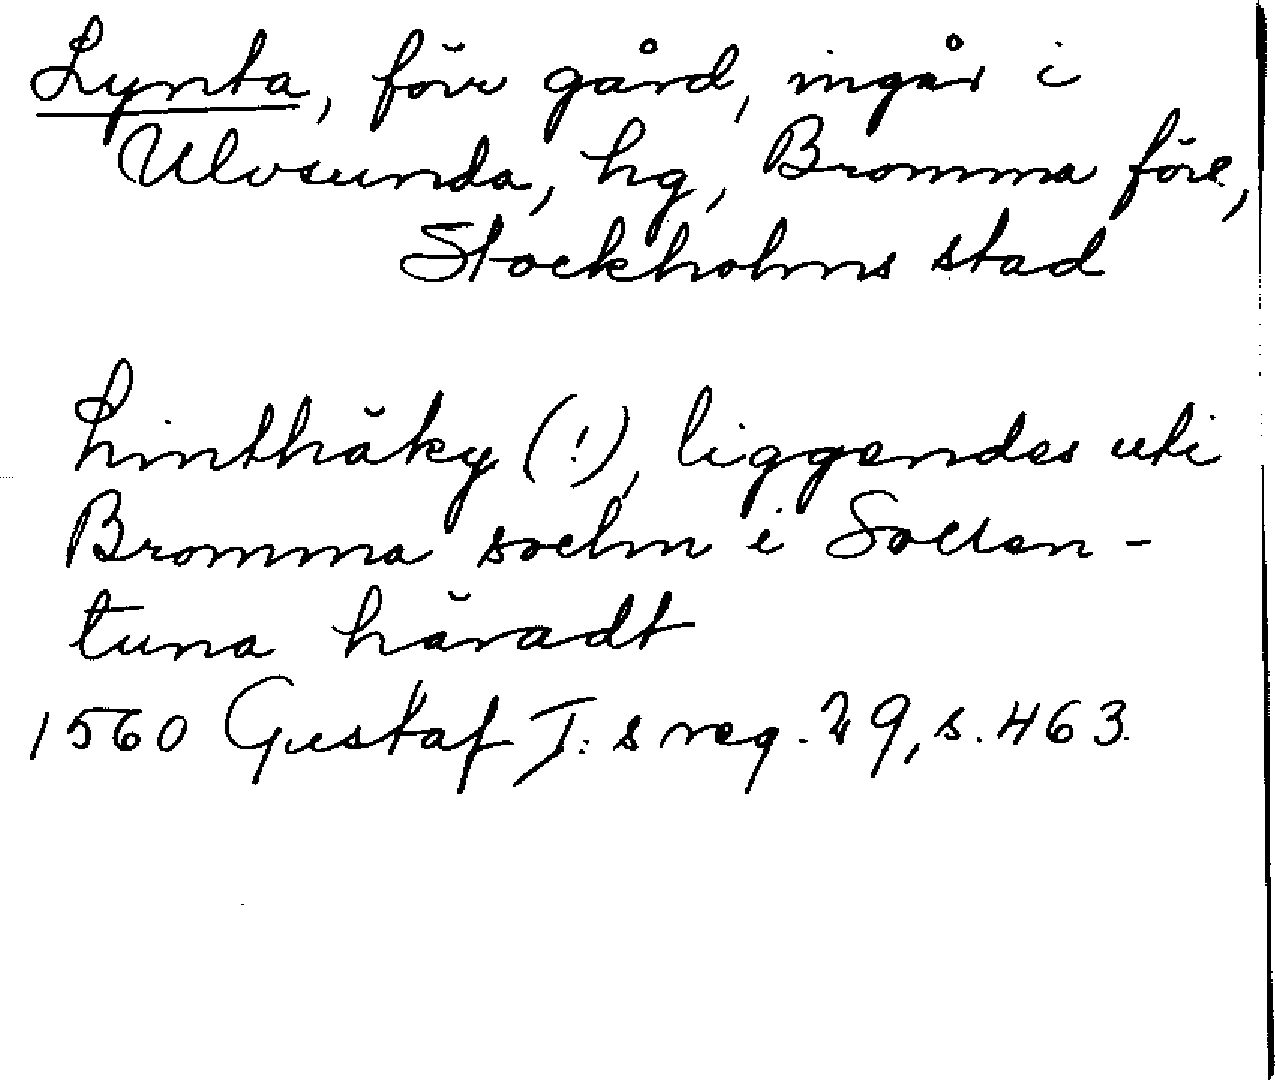 Lynta, förr gård, ingår i
Ulvsunda, hg, Bromma förs,
Stockholms stad
Linthäky (!), liggendes uti
Bromma sochn i Sollen-
tuna häradt
1560 Gustaf I:s reg. 29, s. 463.